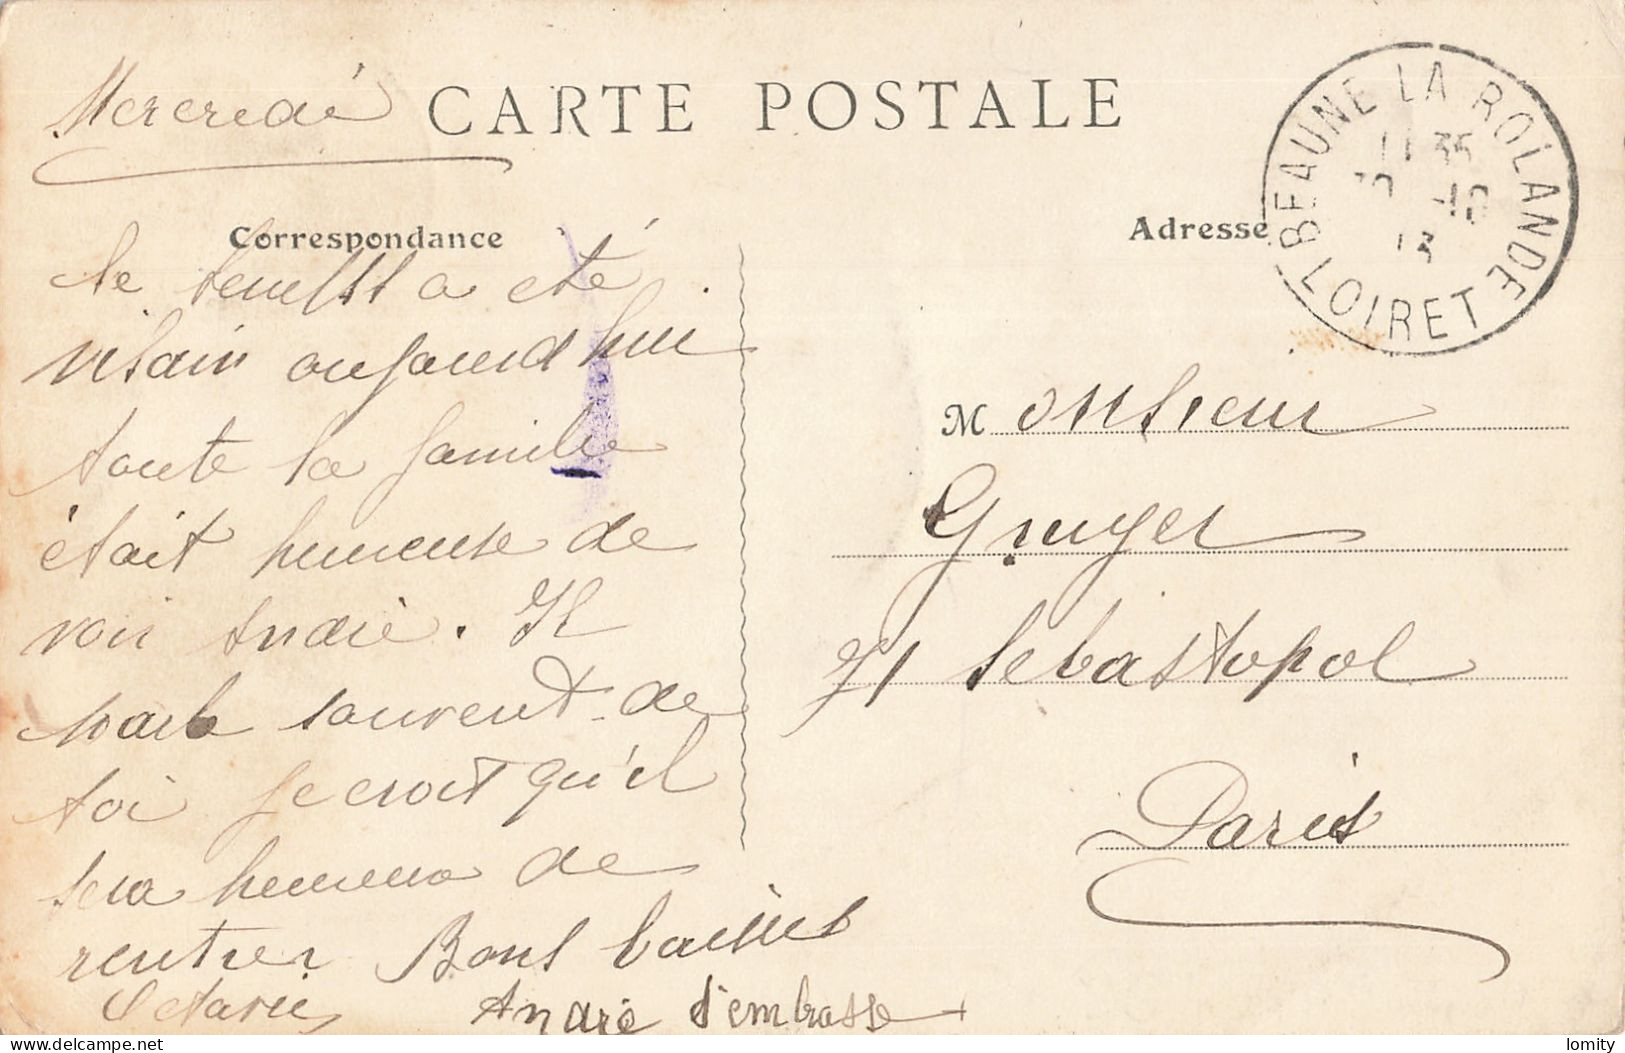 Mercredi
CARTE POSTALE
BEAUNE LA ROLANDE
11 35
-10
13
LOIRET
Correspondance
Adresse
le temps a été
vilain aujourd hui
toute la famille
était heureuse de
voir André. Il
parle souvent de
toi je croit qu'il
sera heureux de
rentrer Bons baisers
Octavie André t'embrasse
Monsieur
Gruyer
71 Sebastopol
Paris
lomity.com